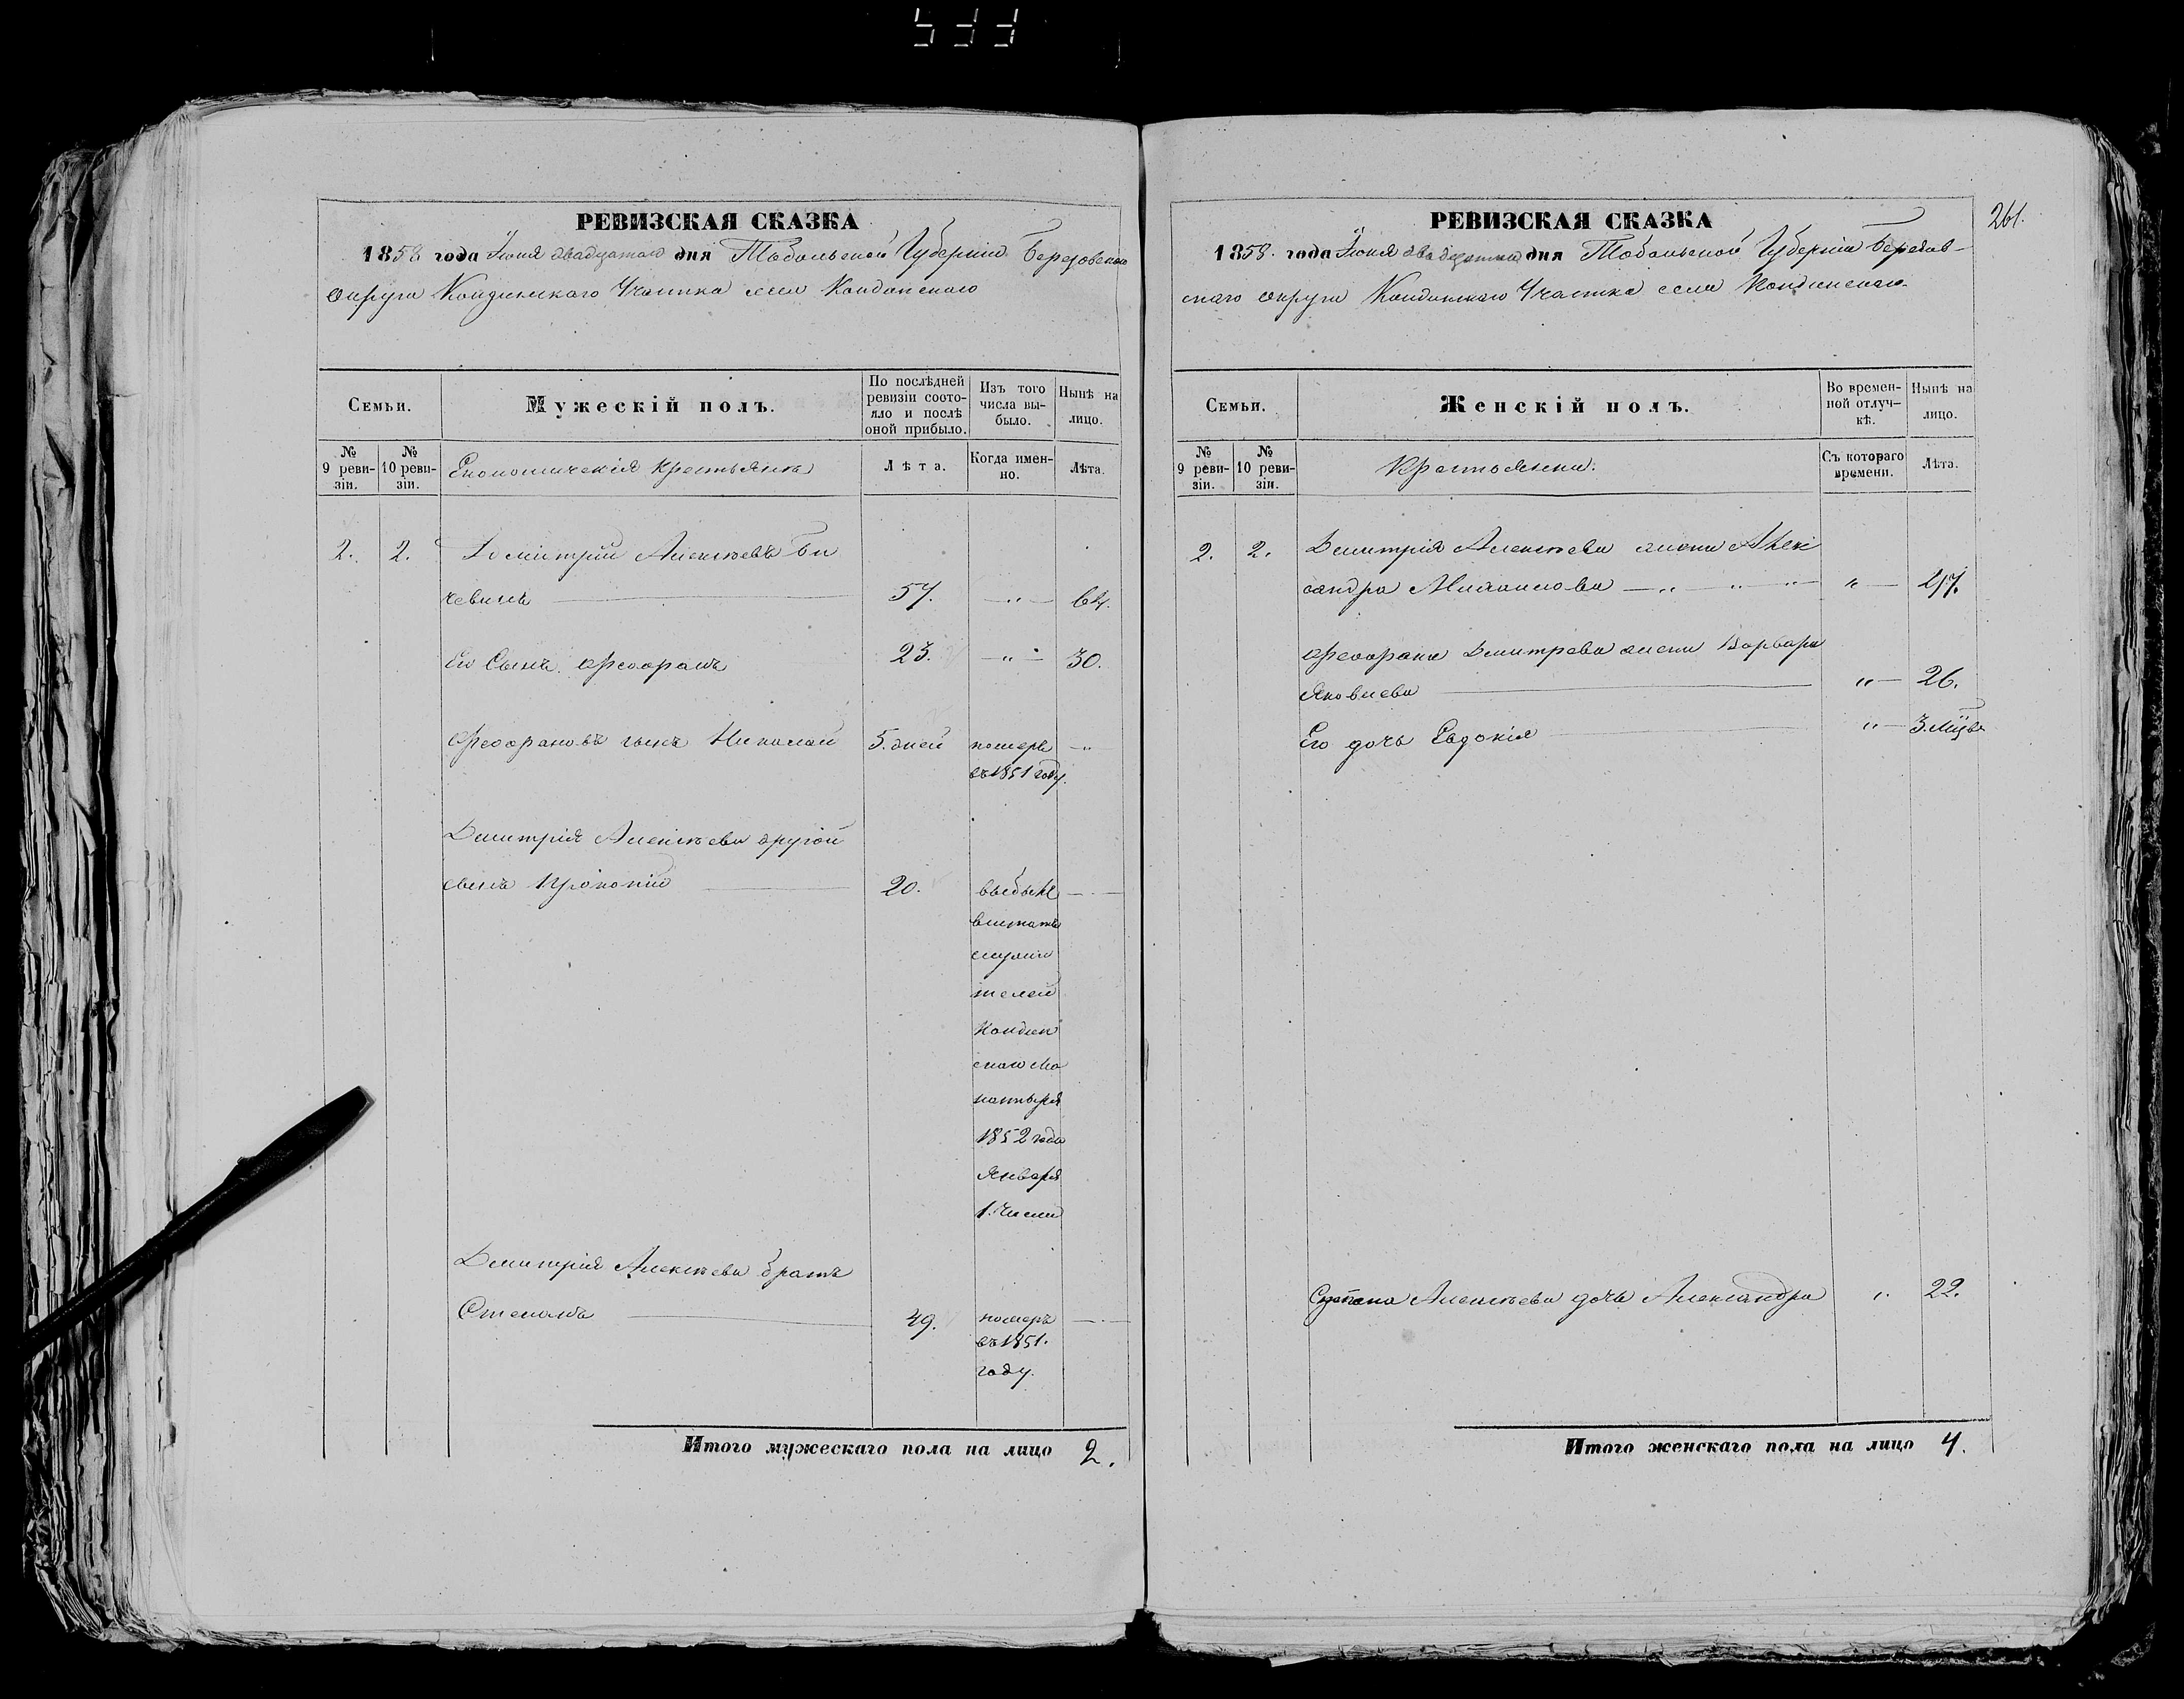 533
РЕВИЗСКАЯ СКАЗКА
1858 года Іюня двадцатаго дня Тобольской Губерніи Березовскаго
округа Кондинскаго Участка села Кондинскаго
Семьи.
Мужескій полъ.
По послѣдней ревизіи состояло и послѣ оной прибыло.
Изъ того числа выбыло.
Нынѣ на лицо.
№ 9 ревизіи.
№ 10 ревизіи.
Економическія крестьяне
Лѣта.
Когда именно.
Лѣта.
2. 2. Дмитрій Алексѣевъ Би
чевинъ 57. „ 64.
Его Сынъ Феофанъ 23. „ 30.
Феофановъ сынъ Николай 5. дней померъ „
въ 1851 году.
Дмитрія Алексѣева другой
сынъ Прокопій 20. выбылъ
въ штатъ
служи
телей
Кондин
скаго Мо
настыря
1852 года
Января
1. числа
Дмитрія Алексѣева братъ
Степанъ 49. померъ
въ 1851.
году.
Итого мужескаго пола на лицо 2.
261.
РЕВИЗСКАЯ СКАЗКА
1858. года Іюня двадцатаго дня Тобольской Губерніи Березов-
скаго округа Кондинскаго Участка села Кондинскаго
Семьи.
Женскій полъ.
Во временной отлучкѣ.
Нынѣ на лицо.
№ 9 ревизіи.
№ 10 ревизіи.
Крестьянки.
Съ котораго времени.
Лѣта.
2. 2. Дмитрія Алексѣева жена Алек
сандра Михаилова „ „ „
Феофана Дмитрева жена Варвара
Яковлева „ 26.
Его дочь Евдокія „ 3. мѣс.
Степана Алексѣева дочь Александра „ 22.
Итого женскаго пола на лицо 4.